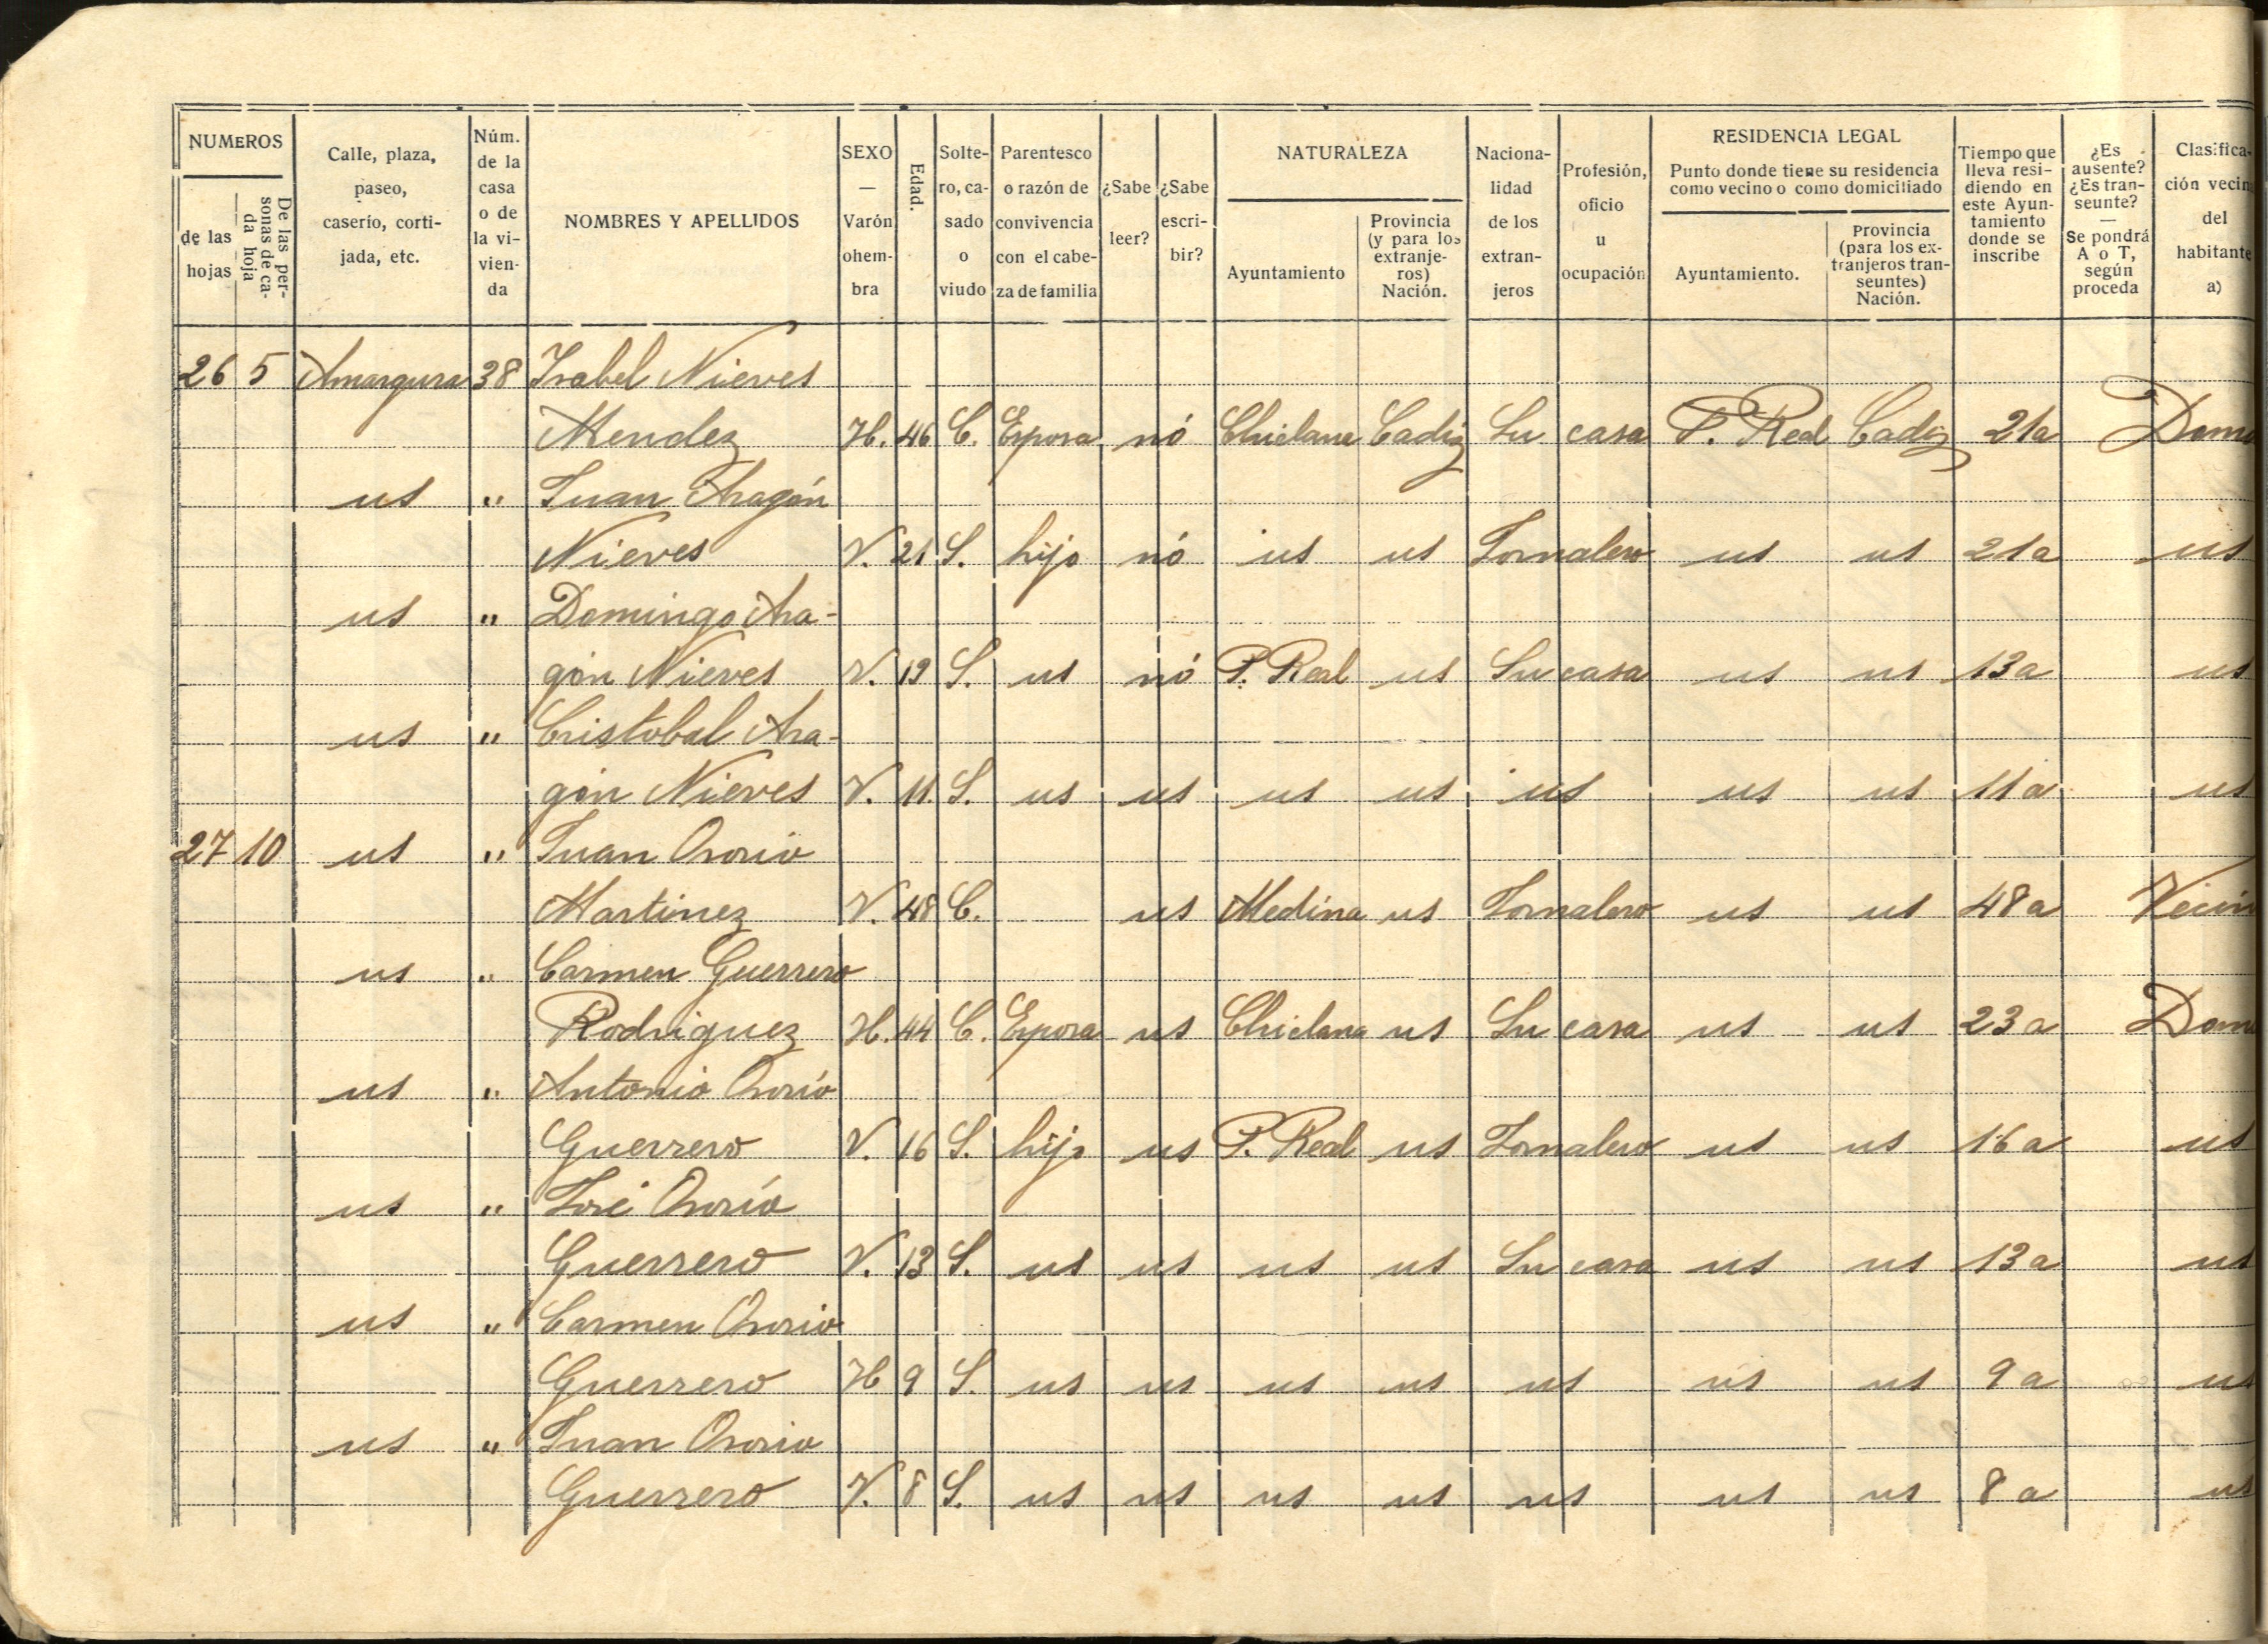 NUMEROS
de las hojas
De las personas de cada hoja
Calle, plaza, paseo, caserío, cortijada, etc.
Núm. de la casa o de la vivienda
NOMBRES Y APELLIDOS
SEXO — Varón ohembra
Edad.
Soltero, casado o viudo
Parentesco o razón de convivencia con el cabeza de familia
¿Sabe leer?
¿Sabe escribir?
NATURALEZA
Ayuntamiento
Provincia (y para los extranjeros) Nación.
Nacionalidad de los extranjeros
Profesión, oficio u ocupación
RESIDENCIA LEGAL
Punto donde tiene su residencia como vecino o como domiciliado
Ayuntamiento.
Provincia (para los extranjeros transeuntes) Nación.
Tiempo que lleva residiendo en este Ayuntamiento donde se inscribe
¿Es ausente? ¿Es transeunte? — Se pondrá A o T, según proceda
Clasifica- ción vecin del habitante a)
26 5 Amargura 38 Isabel Nieves
Mendez H. 46 C. Esposa nó Chiclana Cadiz Su casa P. Real Cadiz 21a Dom
us " Juan Aragón
Nieves V. 21 S. hijo nó us us Jornalero us us 21a us
us " Domingo Ara-
gón Nieves V. 13 S. us nó P. Real us Su casa us us 13a us
us " Cristobal Ara-
gón Nieves V. 11. S. us us us us us us us 11a us
27 10 us " Juan Osorio
Martinez V. 48 C. us Medina us Jornalero us us 48a Vecin
us " Carmen Guerrero
Rodriguez H. 44 C. Esposa us Chiclana us Su casa us us 23a Dom
us " Antonio Osorio
Guerrero V. 16 S. hijo us P. Real us Jornalero us us 16a us
us " José Osorio
Guerrero V. 13 S. us us us us Su casa us us 13a us
us " Carmen Osorio
Guerrero H 9 S. us us us us us us us 9a us
us " Juan Osorio
Guerrero V. 8 S. us us us us us us us 8a us